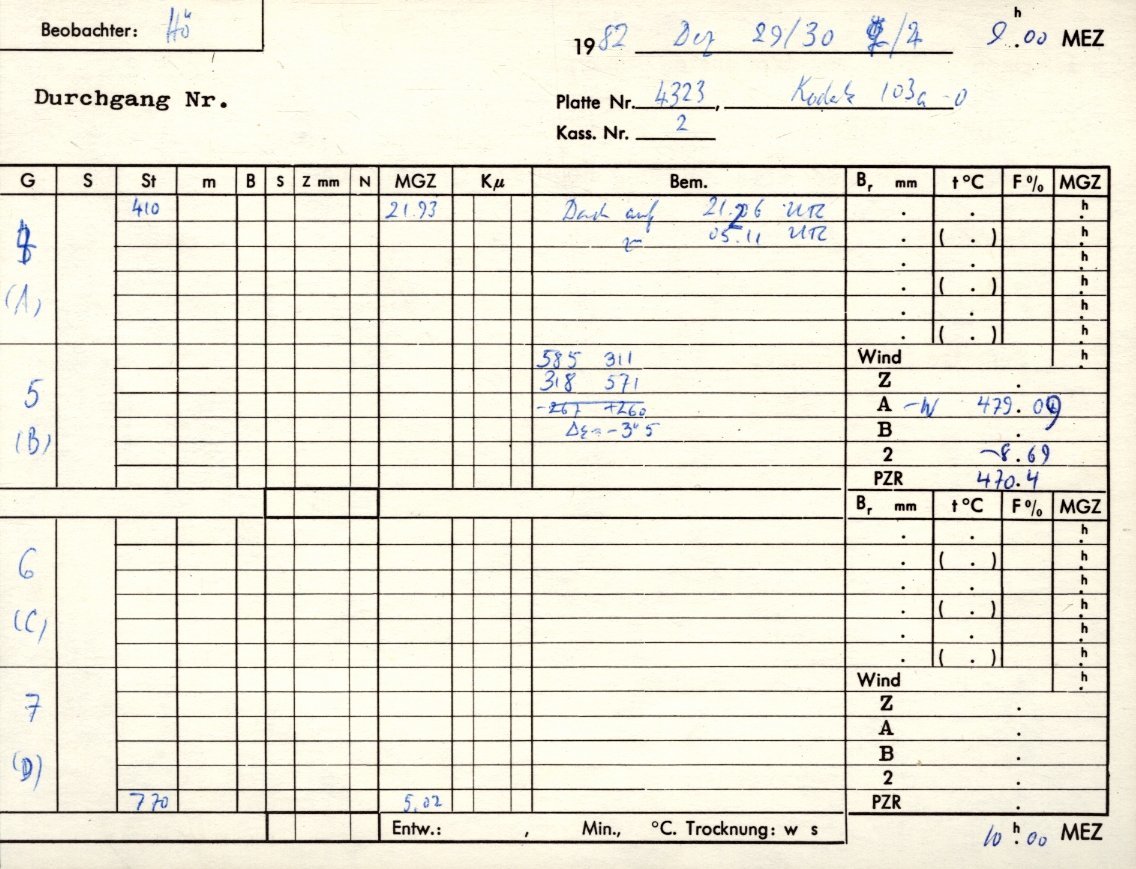 Beobachter: Hö
1982 Dez 29/30 /4 9 h .00 MEZ
Durchgang Nr.
Platte Nr. 4323, Kodak 103a-O
Kass. Nr. 2
G S St m B S Z mm N MGZ Kμ Bem. Br mm t °C F % MGZ
410 21.93 Dach auf 21.26 UTC . . h
4 05.11 UTC . ( . ) h
. . h
(A) . ( . ) h
. . h
. ( . ) h
585 311 Wind h
318 571 Z .
5 -267 +260 A -W 479.09
(B) Δε = -3"5 B .
2 -8.69
PZR 470.4
Br mm t °C F % MGZ
. . h
6 . ( . ) h
. . h
(C) . ( . ) h
. . h
. ( . ) h
Wind h
7 Z .
A .
B .
(D) 2 .
770 5.02 PZR .
Entw.: , Min., °C. Trocknung: w s
10 h .00 MEZ